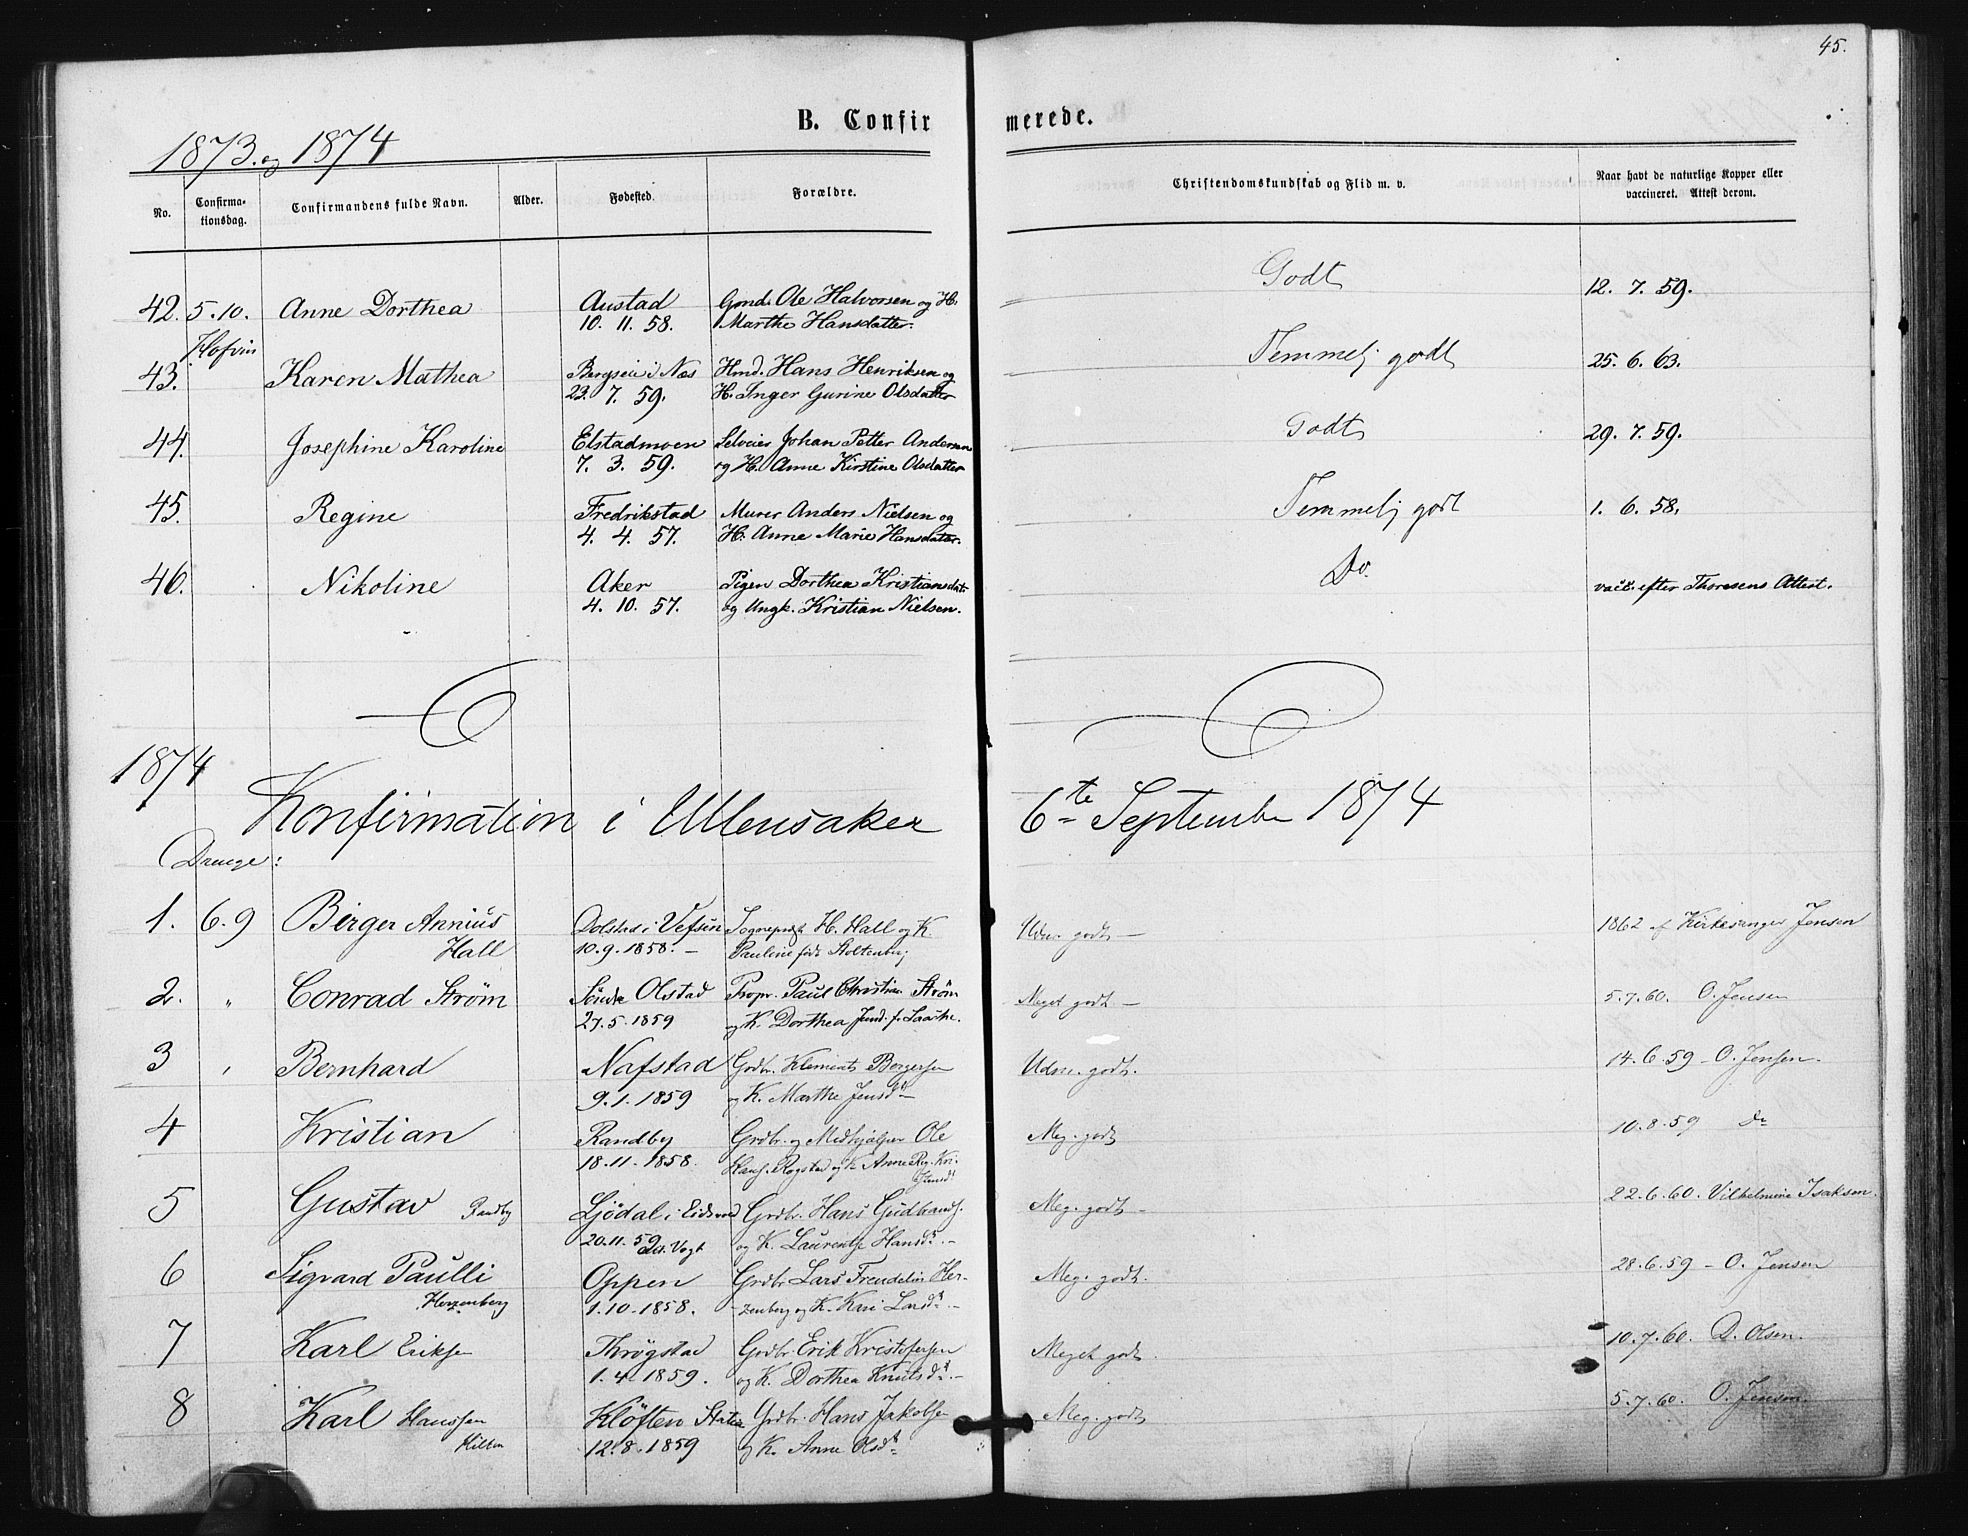 45.
B. Confirmerede.
1873. og 1874
No. Confirmationsdag. Confirmandens fulde Navn. Alder. Fødested. Forældre. Christendomskundskab og Flid m. v. Naar havt de naturlige Kopper eller vaccineret. Attest derom.
42. 5.10. Anne Dorthea Austad Gmd. Ole Halvorsen og H. Godt 12. 7. 59.
10. 11. 58. Marthe Hansdatter.
Hofvin
43. Karen Mathea Bergseie i Næs Hmd. Hans Henriksen og Temmelig godt 25. 6. 63.
23. 7. 59. H. Inger Gurine Olsdatter
44. Josephine Karoline Elstadmoen Selveier Johan Petter Andersen Godt 29. 7. 59.
7. 3. 59. og H. Anne Kirstine Olsdatter
45. Regine Fredrikstad Murer Anders Nielsen og Temmelig godt 1. 6. 58.
4. 4. 57. H. Anne Marie Hansdatter.
46. Nikoline Aker Pigen Dorthea Kristiansdatr Do. vacc. efter Thoresens Attest.
4. 10. 57. og Ungk. Kristian Nielsen.
1874
Konfirmation i Ullensaker 6te September 1874
Drenge:
1. 6.9 Birger Annius Dolstad i Vefsen Sognepræst H. Hall og K. Udm. godt — 1862 af Kirkesanger Jensen
Hall 10.9.1858. — Pauline født Stoltenberg
2. " Conrad Strøm Søndre Olstad Propr. Paul Christian Strøm Meget godt — 5.7.60. O. Jensen
27.5.1859 og K. Dorthea f.
3 " Bernhard Nafstad Grdbr. Klements Bergersen Udm. godt. 14.6.59 – O. Jensen.
9.1.1859 og K. Marthe Jensd.
4 Kristian Randby Grdbr. og Medhjælper Ole Meg. godt 10.8.59 Do
18.11.1858. Hans. Rogstad og K. Anne Reg. Kristensd.
5 Gustav Randby Ljødal i Eidsvold Grdbr. Hans Gudbrands. Meg. godt – 22.6.60. Vilhelmine Isaksen.
20.11.59 og K. Laurentse Hansd. —
6 Sigvard Paulli Oppen Grdbr. Lars Trendelin Her- Meg. godt. 28.6.59 – O. Jensen
Herzenberg 1.10.1858. zenberg og K. Kari Larsd. —
7 Karl Eriksen Thrøgstad Grdbr. Erik Kristofersen Meget godt. 10.7.60. D. Olsen.
1.4.1859. og K. Dorthea Knutsd. —
8 Karl Hanssen Kløften Station Grdbr. Hans Jakobsen Meg. godt 5.7.60. O. Jensen.
Hilton 12.8.1859 og K. Anne Olsd.